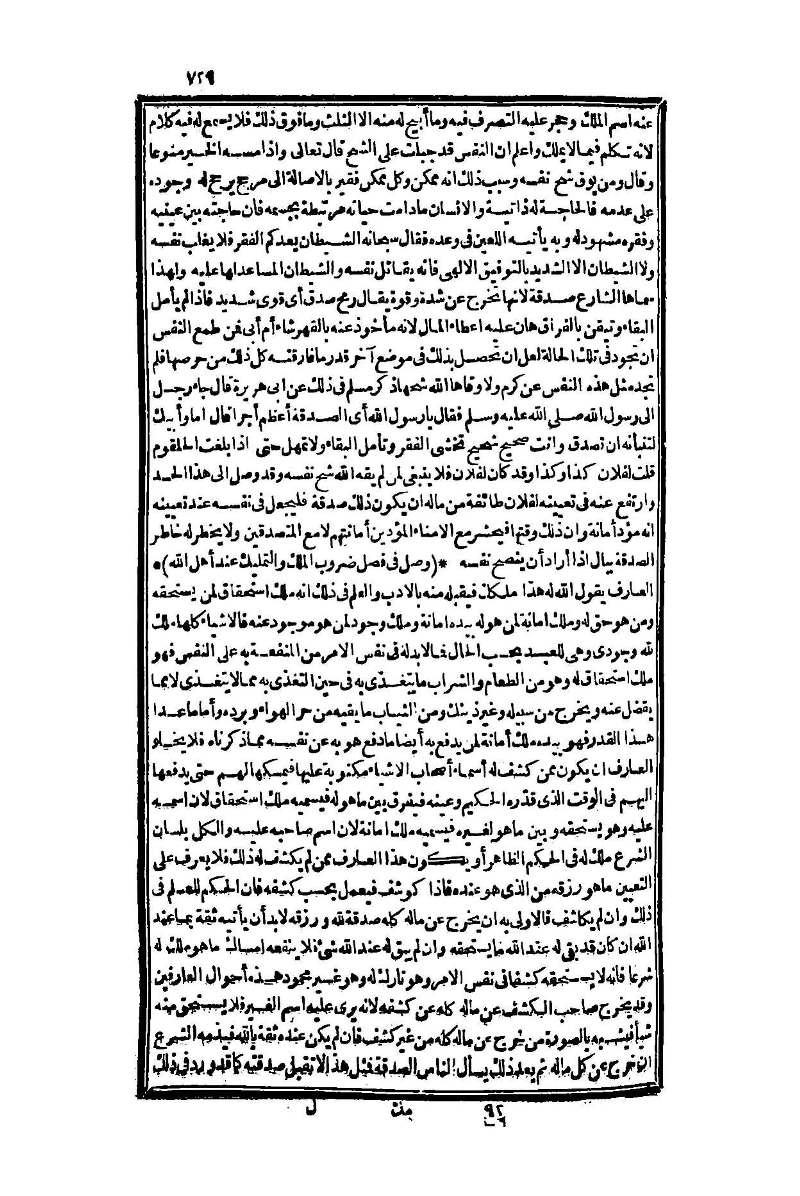 ٧٢٩
عنه اسم الملك وحجر عليه التصرف فيه وما أبيح له منه الا الثلث وما فوق ذلك فلا يسمع له فيه كلام
لانه تكلم فيما لا يملك واعلم ان النفس قد جبلت على الشح قال تعالى واذا مسه الخير منوعا
وقال ومن يوق شح نفسه وسبب ذلك انه ممكن وكل ممكن فقير بالاصالة الى مرجح يرجح له وجوده
على عدمه فالحاجة له ذاتية والانسان ما دامت حياته مرتبطة بجسمه فان حاجته بين عينيه
وفقره مشهود له وبه يأتيه اللعين في وعده فقال سبحانه الشيطان يعدكم الفقر فلا يغلب نفسه
ولا الشيطان الا الشديد بالتوفيق الالهى فانه يقاتل نفسه والشيطان المساعد لها عليه ولهذا
سماها الشارع صدقة لانها تخرج عن شدة وقوة يقال رمح صدق أى قوى شديد فاذا لم يأمل
البقاء وتيقن بالفراق هان عليه اعطاء المال لانه مأخوذ عنه بالقهر شاء أم أبى فمن طمع النفس
ان تجود في تلك الحالة لعل ان تحصل بذلك في موضع آخر قدر ما فارقته كل ذلك من حرصها فلم
تجد مثل هذه النفس عن كرم ولا وقاها الله شحها ذكر مسلم في ذلك عن ابى هريرة قال جاء رجل
الى رسول الله صلى الله عليه وسلم فقال يا رسول الله أى الصدقة أعظم أجرا قال اما وأبيك
لتنبأنه ان تصدق وانت صحيح شحيح تخشى الفقر وتأمل البقاء ولا تمهل حتى اذا بلغت الحلقوم
قلت لفلان كذا وكذا وقد كان لفلان فلا ينبغى لمن لم يقه الله شح نفسه وقد وصل الى هذا الحد
وارتفع عنه في تعيينه لفلان طائفة من ماله ان يكون ذلك صدقة فليجعل في نفسه عند تعيينه
انه مؤد أمانة وان ذلك وقتها فيحشر مع الامناء المؤدين أمانتهم لا مع المتصدقين ولا يخطر له خاطر
الصدقة ببال اذا أراد أن ينصح نفسه *(وصل في فصل ضروب الملك والتمليك عند أهل الله)*
العارف يقول الله له هذا ملكك فيقبله منه بالادب والعلم في ذلك انه ملك استحقاق لمن يستحقه
ومن هو حق له وملك امانة لمن هو له بيده امانة وملك وجود لمن هو موجود عنه فالاشياء كلها ملك
لله وجودى وهى للعبد بحسب الحال فما لا بد له في نفس الامر من المنفعة به على النفس فهو
ملك استحقاق له وهو من الطعام والشراب ما يتغذى به في حين التغذى به مما لا يتغذى لا بما
يفضل عنه ويخرج من سبيله وغير ذينك ومن الثياب ما يقيه من حر الهواء وبرده وأما ما عدا
هذا القدر فهو بيده ملك أمانة لمن يدفع به أيضا ما دفع هو به عن نفسه مما ذكرناه فلا يخلو
العارف ان يكون ممن كشف له أسماء أصحاب الاشياء مكتوبة عليها فيمسكها لهم حتى يدفعها
اليهم في الوقت الذى قدره الحكيم وعينه فيفرق بين ما هو له فيسميه ملك استحقاق لان اسمه
عليه وهو يستحقه وبين ما هو لغيره فيسميه ملك امانة لان اسم صاحبه عليه والكل بلسان
الشرع ملك له في الحكم الظاهر أو يكون هذا العارف ممن لم يكشف له ذلك فلا يعرف على
التعيين ما هو رزقه من الذى هو عنده فاذا كوشف فيعمل بحسب كشفه فان الحكم للعلم في
ذلك وان لم يكاشف فالاولى به ان يخرج عن ماله كله صدقة لله ورزقه لا بد أن يأتيه ثقة بما عند
الله ان كان قد بقى له عند الله ما يستحقه وان لم يبق له عند الله شئ فلا ينفعه امساك ما هو ملك له
شرعا فانه لا يستحقه كشفا في نفس الامر وهو تارك له وهو غير محمود هذه أحوال العارفين
وقد يخرج صاحب الكشف عن ماله كله عن كشفه لانه يرى عليه اسم الغير فلا يستحق منه
شيأ فيشبه بالصورة من خرج عن ماله كله من غير كشف فان لم يكن عنده ثقة بالله فيذمه الشرع
ان خرج عن كل ماله ثم بعد ذلك يسأل الناس الصدقة فمثل هذا لا تقبل صدقته كما قد ورد في ذلك
٩٢ مت ل